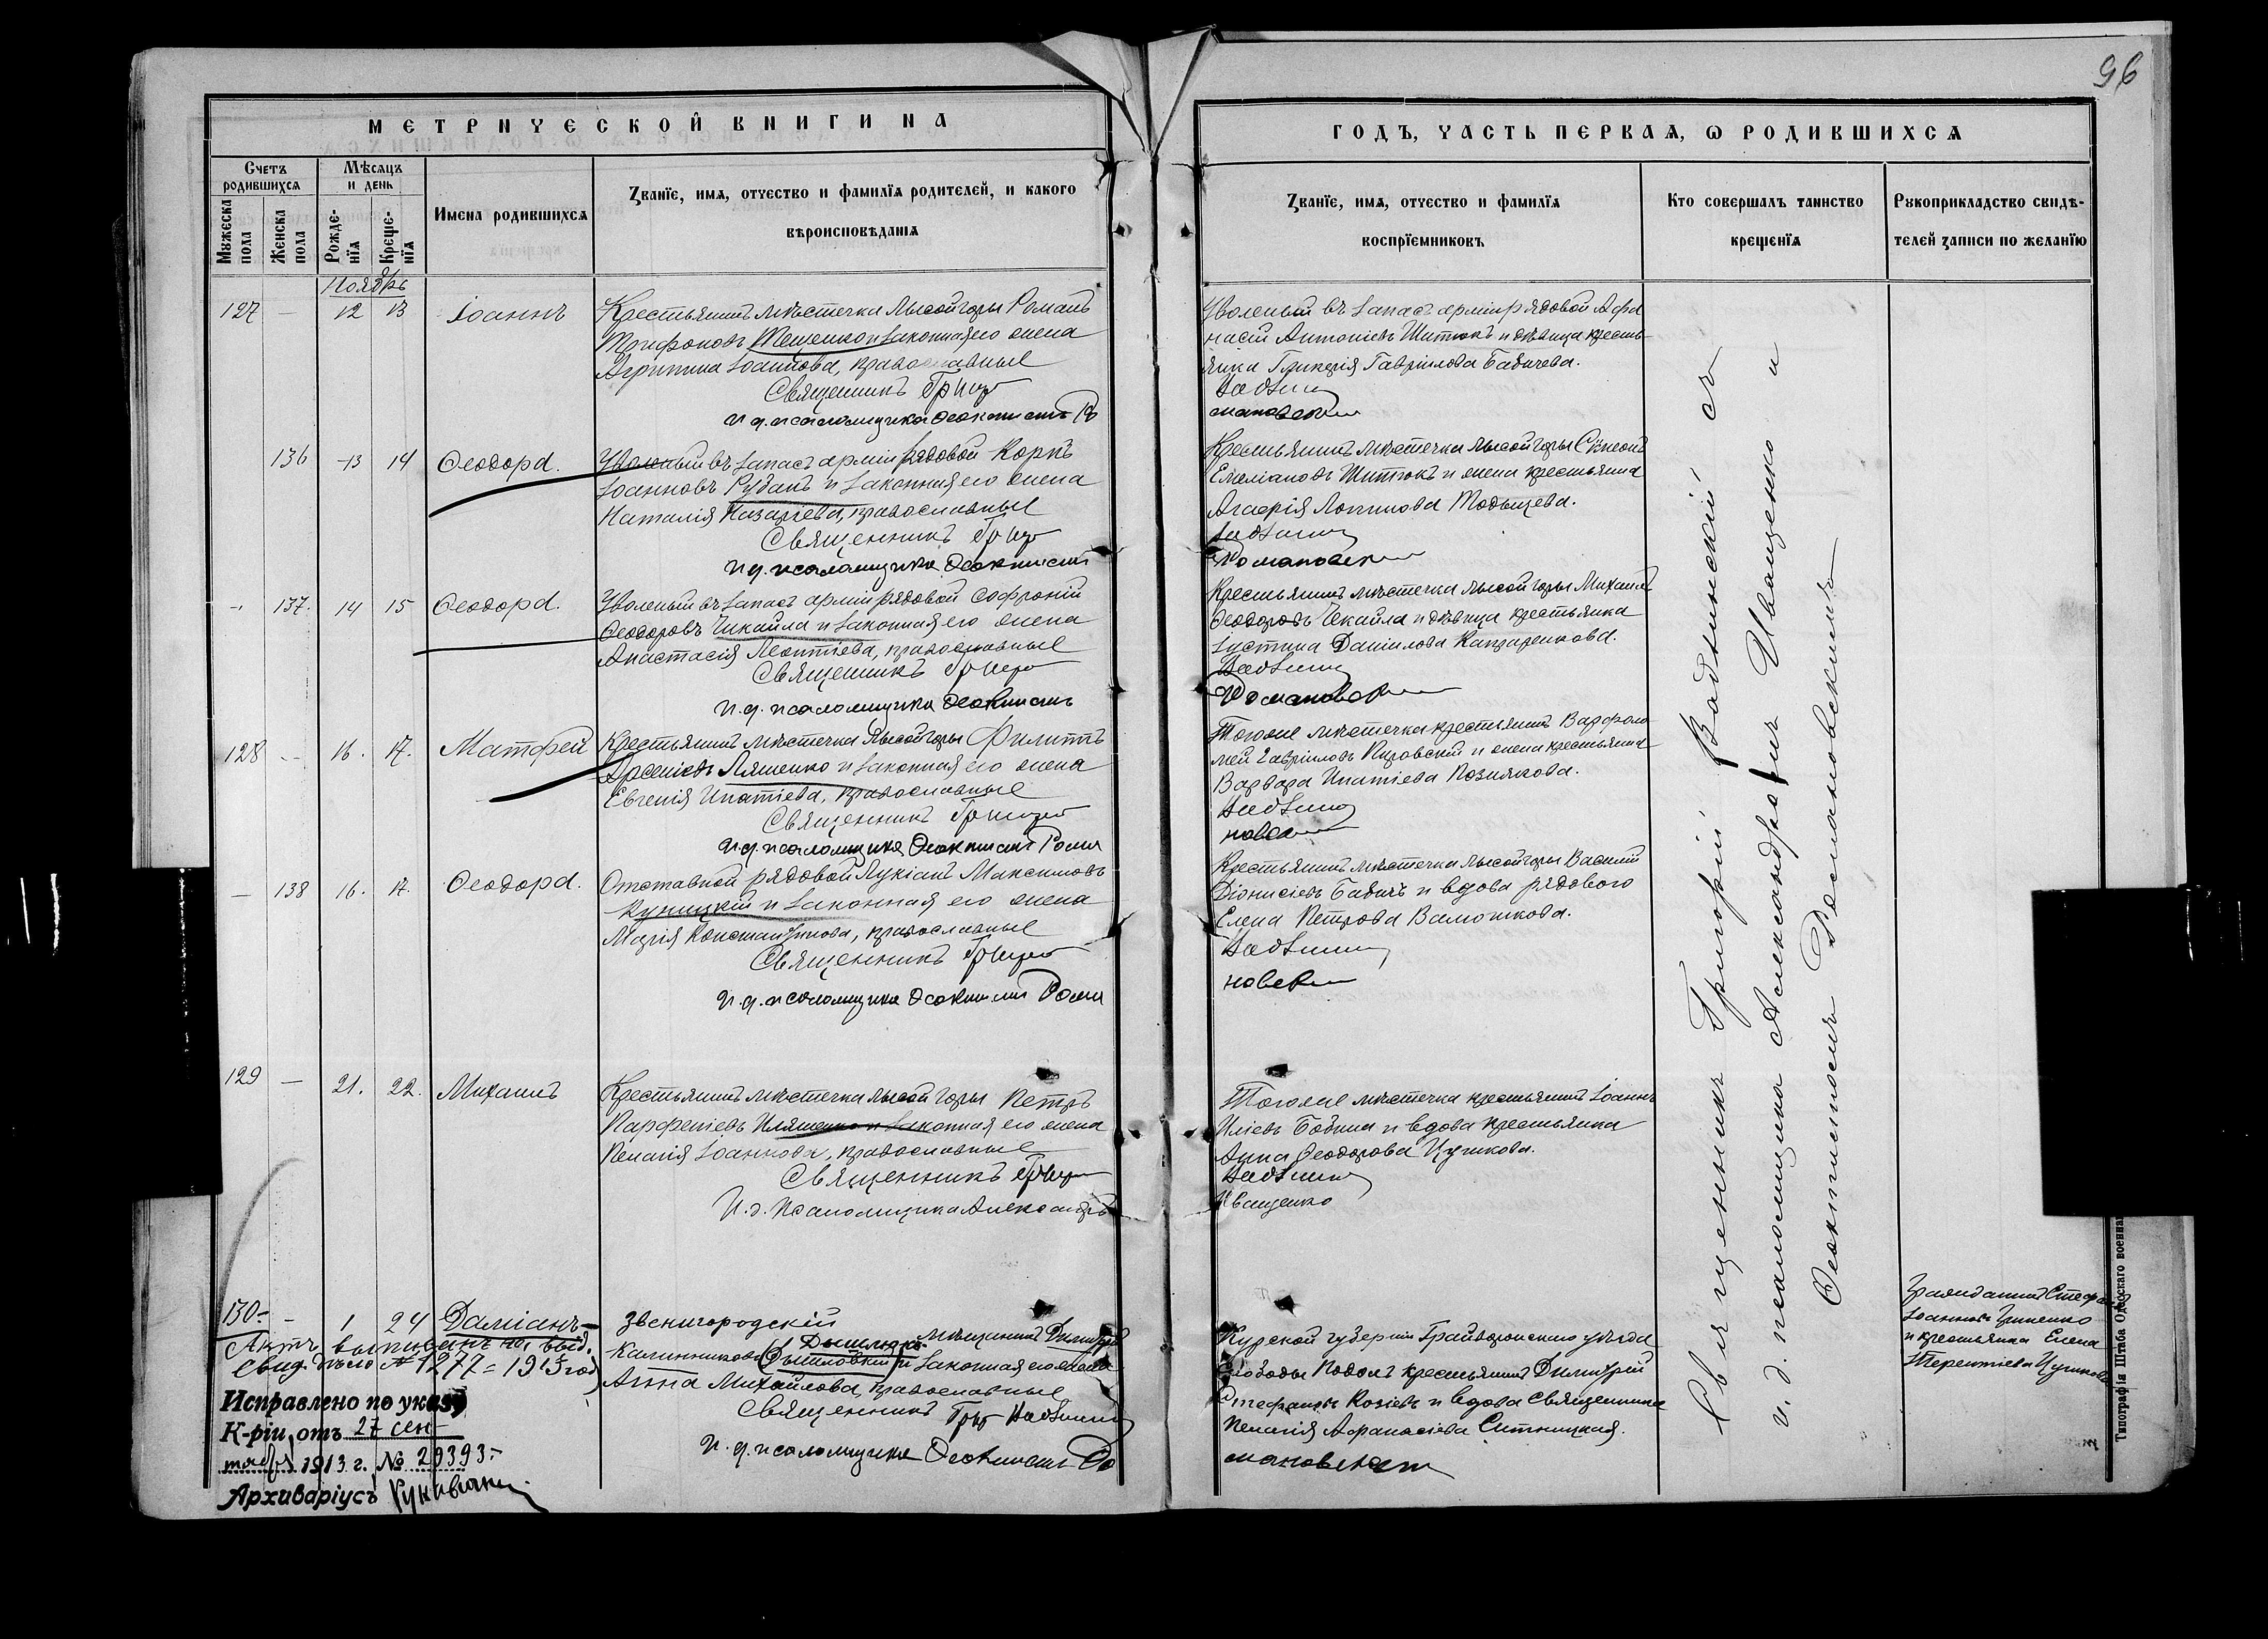 96
МЕТРИЧЕСКОЙ КНИГИ НА
ГОДЪ, ЧАСТЬ ПЕРВАЯ, Ѡ РОДИВШИХСЯ
Счетъ родившихся
Мѣсяцъ и день
Мужеска пола
Женска пола
Рожденїя
Крещенїя
Имена родившихся
Званїе, имя, отчество и фамилїя родителей, и какого
вѣроисповѣданїя
Званїе, имя, отчество и фамилїя
воспрїемниковъ
Кто совершалъ таинство
крещенїя
Рукоприкладство свидѣ-
телей записи по желанїю
Ноябрь
127 — 12 13 Іоаннъ
Крестьянинъ мѣстечка Лысой горы Романъ
Трифоновъ Тещенко и законная его жена
Агрипина Іоаннова, православные
Священникъ Григо
и д. псаломщика Ѳеоктистъ Ро
Уволеный въ запасъ арміи рядовой Афа
насій Антоніевъ Шитюкъ и дѣвица кресть-
янка Гликерія Гавріилова Бабичева.
мановскій
136 13 14 Ѳеодора.
Уволеный въ запасъ арміи рядовой Корнъ
Іоанновъ Руданъ и законная его жена
Наталія Назаріева, православные
Священникъ Григо
и д. псаломщика Ѳеоктистъ
Крестьянинъ мѣстечка Лысой горы Сѵмеонъ
Емеліановъ Шитюкъ и жена крестьянина
Агафія Логинова Тодыщева.
Романовскій
137. 14 15 Ѳеодора.
Уволеный въ запасъ арміи рядовой Софроній
Ѳеодоровъ Чикайла и законная его жена
Анастасія Леонтіева, православные
Священникъ Григо
и. д. псаломщика Ѳеоктистъ
Крестьянинъ мѣстечка Лысой горы Михаилъ
Ѳеодоровъ Чекайла и дѣвица крестьянка
Іустина Даніилова Капраренкова.
Романовскій
128 — 16. 17. Матфей
Крестьянинъ мѣстечка Лысой горы Филиппъ
Арсеніевъ Ляшенко и законная его жена
Евгенія Ипатіева, православные
Священникъ Григо
и д. псаломщика Ѳеоктистъ Рома
Тогоже мѣстечка крестьянинъ Варфоло
мей Гавріиловъ Пировскій и жена крестьянина
Варвара Ипатіева Познякова.
новскій
— 138 16. 17. Ѳеодора.
Отставной рядовой Лукіанъ Максимовъ
Куницкій и законная его жена
Марія Константинова, православные
Священникъ Григо
и. д. псаломщика Ѳеоктистъ Рома
Крестьянинъ мѣстечка Лысой горы Василій
Діонисіевъ Бабичъ и вдова рядового
Елена Петрова Вамошкова.
новскій
129 — 21. 22. Михаилъ
Крестьянинъ мѣстечка Лысой горы Петръ
Парфеніевъ Иляшенко и законная его жена
Пелагія Іоаннова, православные
Священникъ Григо
И. д. Псаломщика Александръ
Тогоже мѣстечка крестьянинъ Іоаннъ
Иліевъ Бобина и вдова крестьянка
Анна Ѳеодорова Цушкова.
Иващенко
130 — 1 24 Даміанъ
Звенигородскій мѣщанинъ Димитрій
Калинниковъ (Дышловый) Дышлюкъ и законная его жена
Анна Михайлова, православные
Священникъ Григ
и. д. псаломщика Ѳеоктистъ Ро
Курской губерніи Грайворонскаго уѣзда
слободы Подолъ крестьянинъ Димитрій
Стефановъ Козіевъ и вдова священника
Пелагія Аѳанасіева Ситницкая.
мановскій
Гражданинъ Стефанъ
Іоанновъ Гриненко
и крестьянка Елена
Терентіева Цушкова
Актъ выписанъ на выд.
свид. дѣло № 1277 - 1913 год
Исправлено по указу
К-ріи отъ 27 сен-
тября 1913 г. № 29393.-
Архиваріусъ
Священникъ Григорій Вадзинскій съ
и. д. псаломщика Александромъ Иващенко и
Ѳеоктистомъ Романовскимъ
Типографія Штаба Одесскаго военна